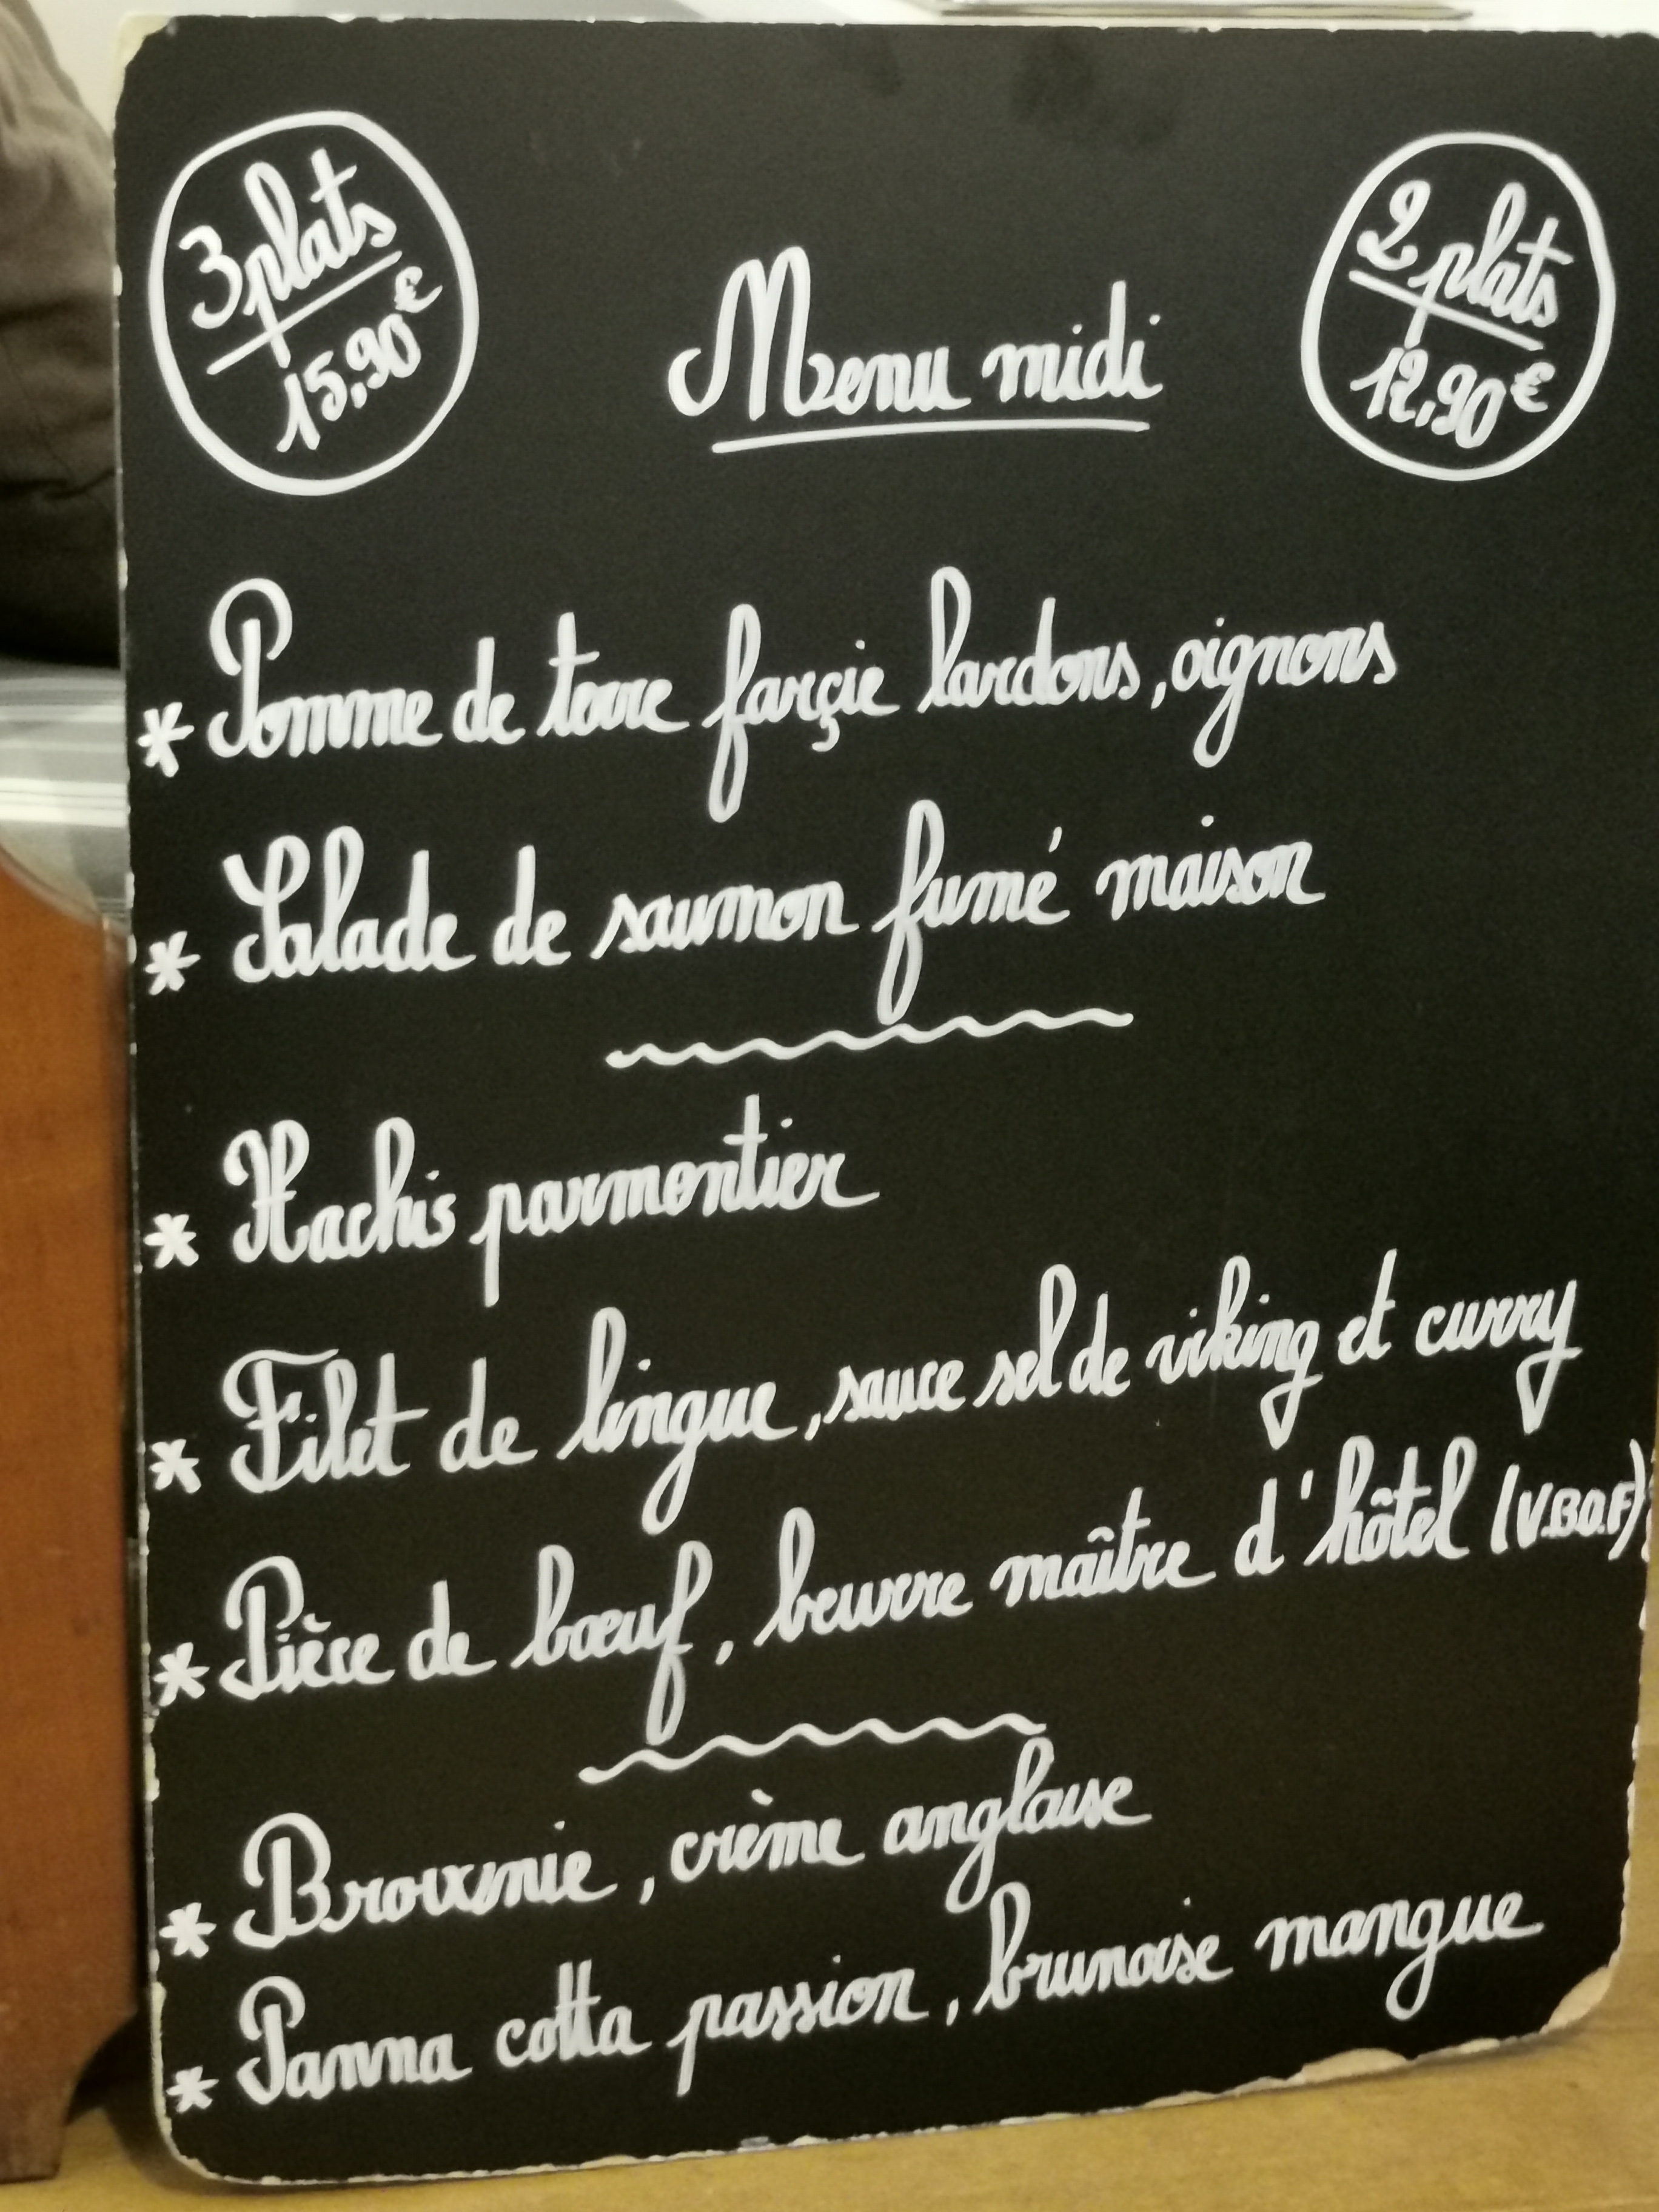 3 plats
15,90€
Menu midi
2 plats
12,90€
* Pomme de terre farçie lardons, oignons
* Salade de saumon fumé maison
* Hachis parmentier
* Filet de lingue, sauce sel de viking et curry
* Pièce de bœuf, beurre maître d'hôtel (V.B.O.F)
* Brownie, crème anglaise
* Panna cotta passion, brunoise mangue